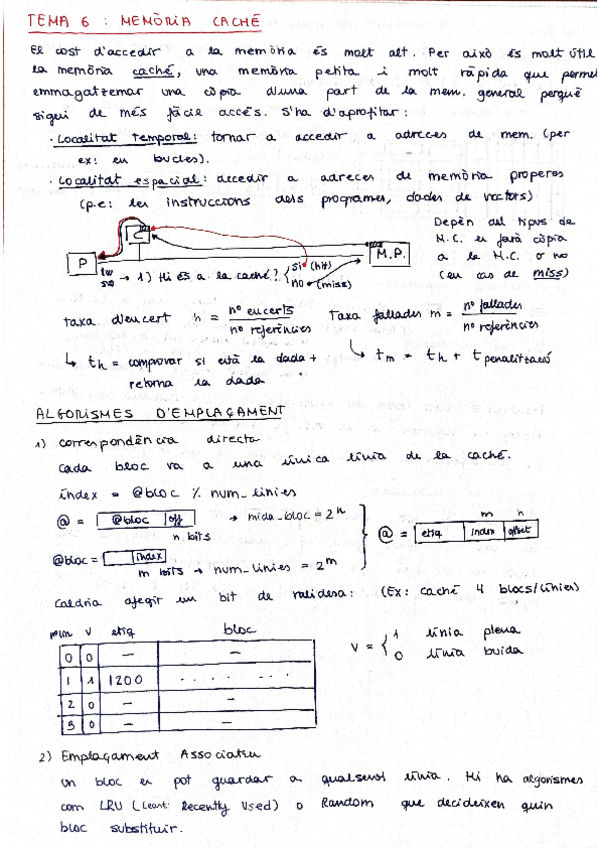 TEMA 6 : MEMÒRIA CACHÉ
El cost d'accedir a la memòria és molt alt. Per això és molt útil
la memòria caché, una memòria petita i molt ràpida que permet
emmagatzemar una còpia d'una part de la mem. general perquè
sigui de més fàcil accés. S'ha d'aprofitar:
· Localitat temporal: tornar a accedir a adreces de mem. (per
ex: en bucles).
· Localitat espacial: accedir a adreces de memòria properes
(p.e: les instruccions dels programes, dades de vectors)
C
P
M.P.
→ 1) Hi és a la caché? { Sí (hit)
no (miss)
Depèn del tipus de
M.C. es farà còpia
a la M.C. o no
(en cas de miss)
taxa d'encert h = nº encerts / nº referències
Taxa fallades m = nº fallades / nº referències
↳ th = comprovar si està la dada +
retorna la dada
↳ tm = th + t penalització
ALGORISMES D'EMPLAÇAMENT
1) correspondència directa
Cada bloc va a una única línia de la caché.
índex = @bloc % num_línies
@ = @bloc | off → mida_bloc = 2^n
n bits
@bloc = | index
m bits → num_línies = 2^m
m n
@ = etiq | index | offset
Caldria afegir un bit de validesa: (Ex: caché 4 blocs/línies)
num v etiq bloc
0 0 — —
1 1 1200 · · · · · · ·
2 0 — —
3 0 — —
V = { 1 línia plena
0 línia buida
2) Emplaçament Associatiu
un bloc es pot guardar a qualsevol línia. Hi ha algorismes
com LRU (Least Recently Used) o Random que decideixen quin
bloc substituir.